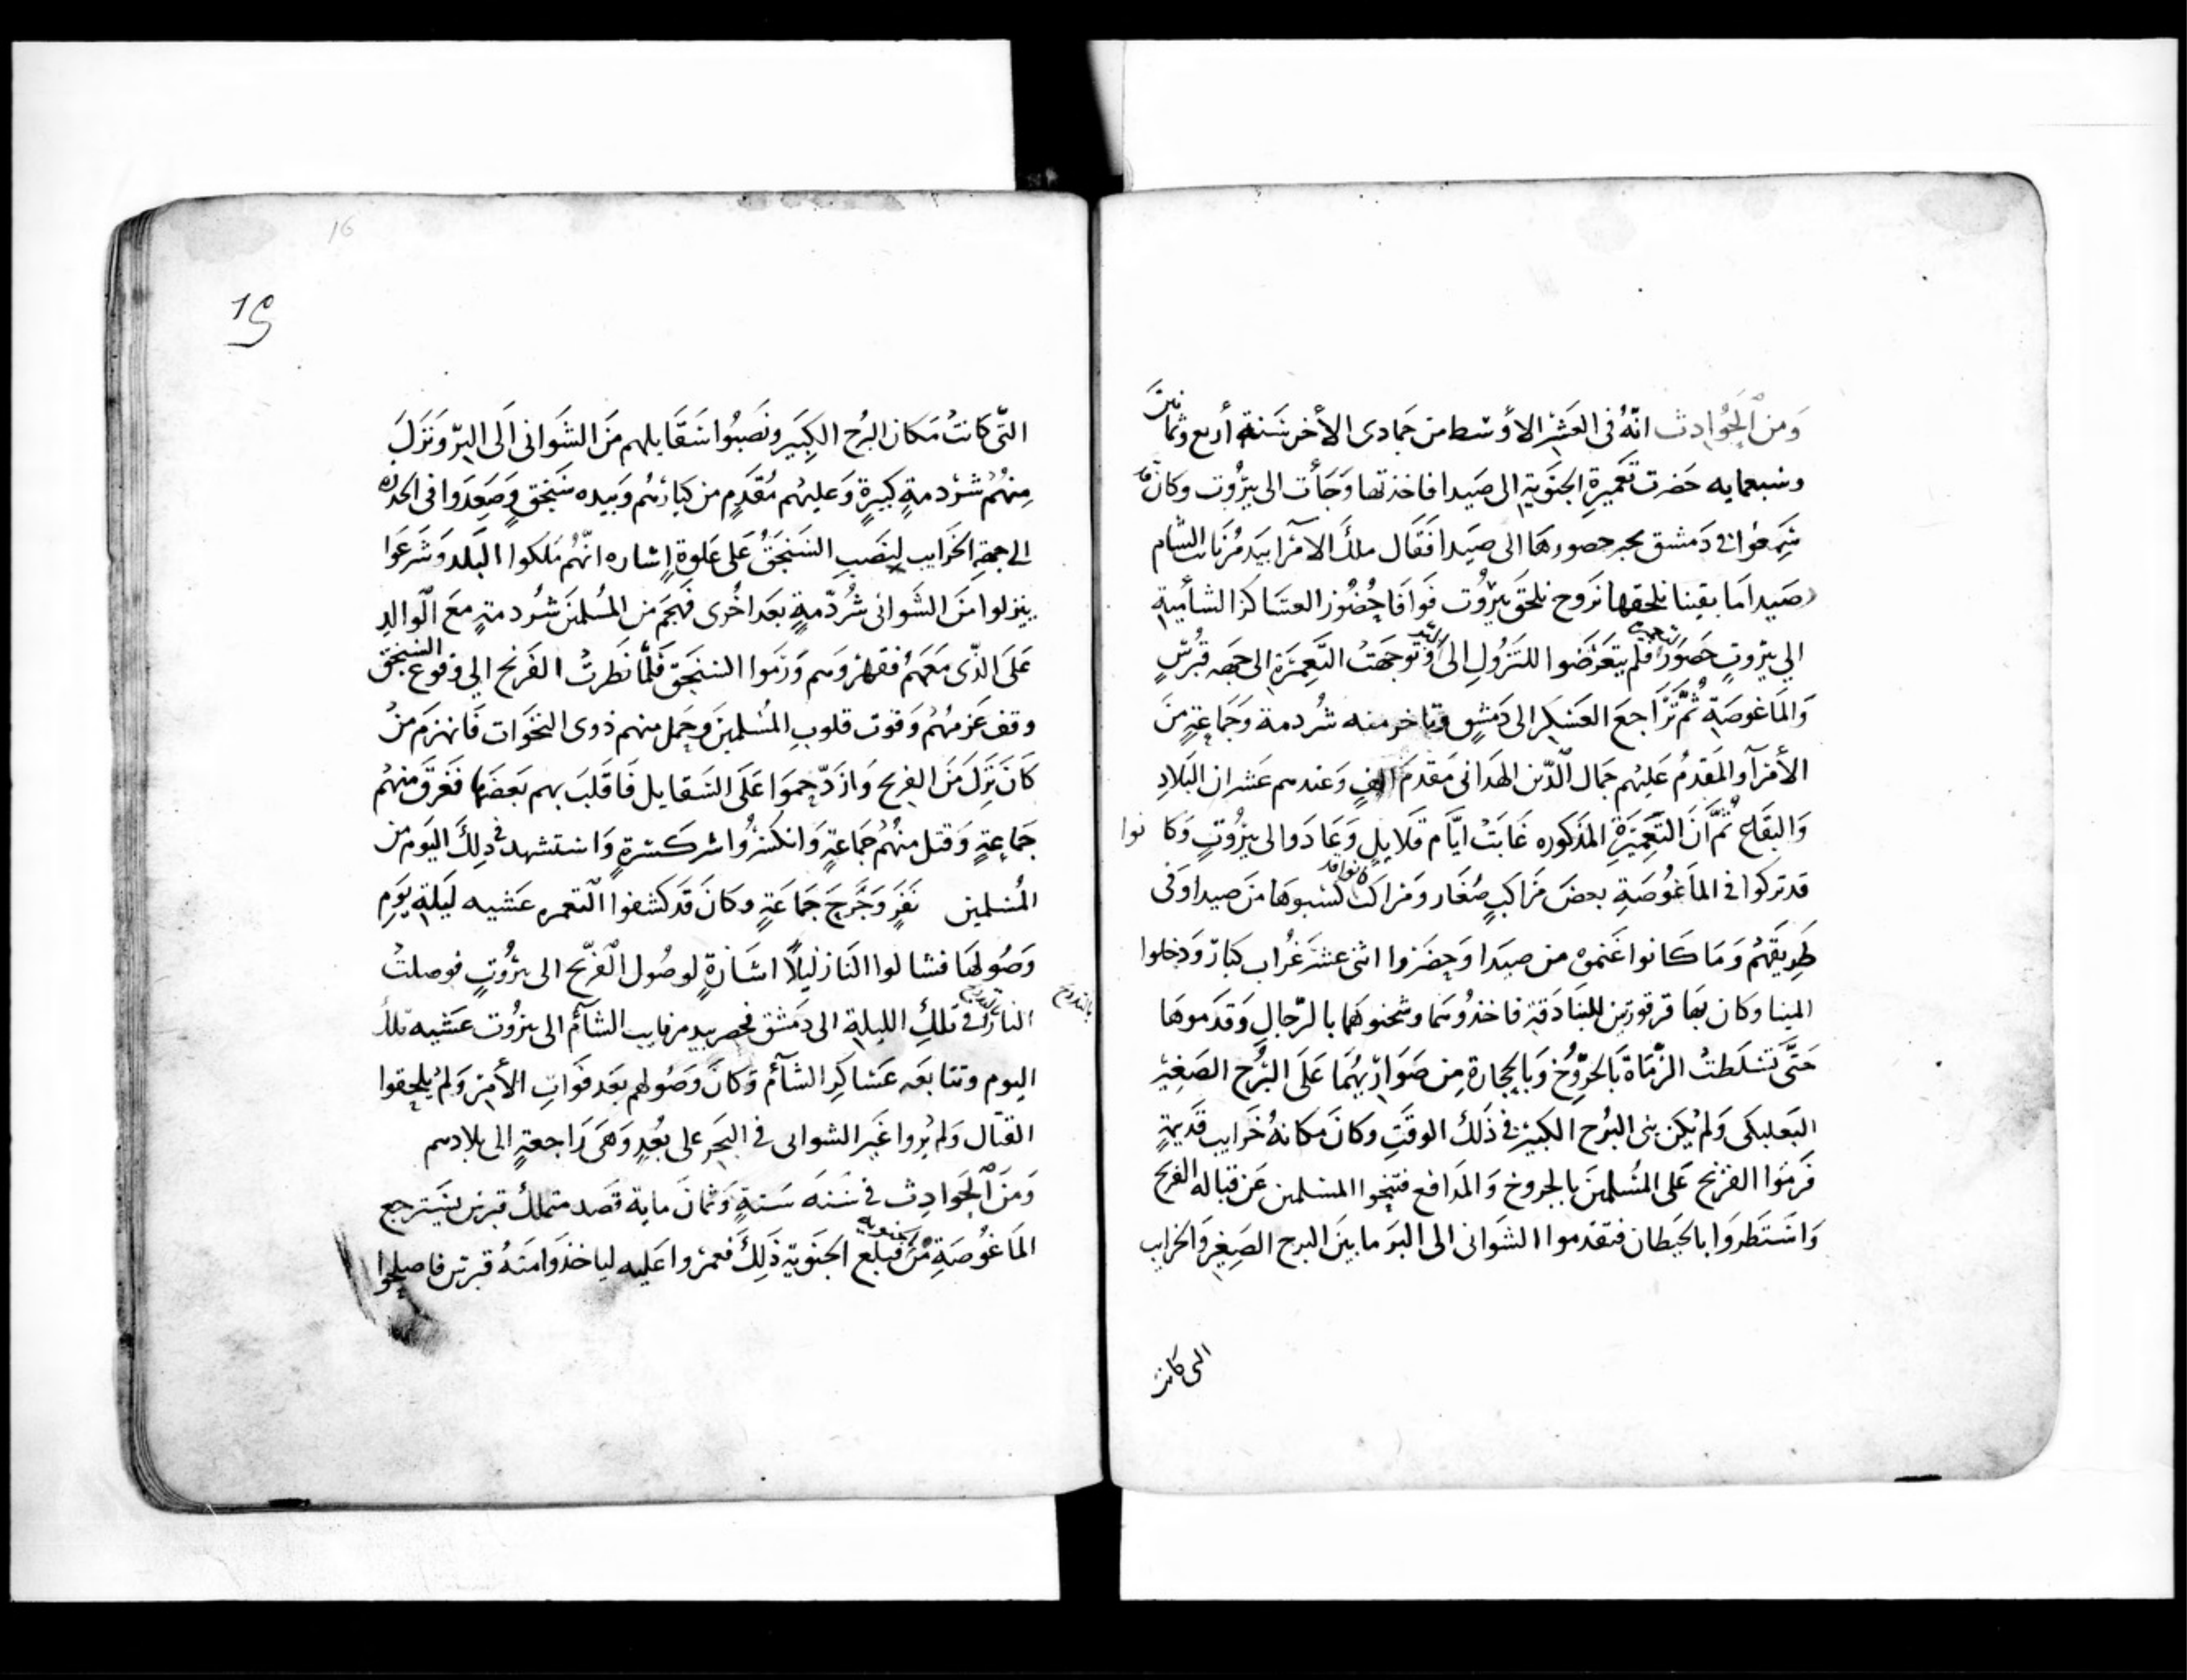 وَمنَ الحَوادِث انّهُ فى العَشر الاوسَط من جمَادى الأخر سَنة أربع وثمانين
وسبعمايه حَضرت تَعميرة الجنَوية الى صَيدا فاخذتها وَجَأت الى بيرُوت وكان قد
سَمِعوا فى دَمشق بخبر حصورها الى صَيدا فَقَال ملكَ الامَرآ بيدمُر نايب الشام
صَيدا مَا بقينا نلحقها نروح نلحَق بيرُوت فَوافَا حُضُور العسَاكر الشامية
الى بيرُوت حَضور التعميره فلم يتَعرّضوا للنزُولِ الى البر وَتَوجّهتْ التَعميرَة الى جهه قُبرُس
وَالمَاغوصَة ثُمّ تَرَاجعَ العَسْكر الى دَمشق وتاخر منه شُردمة وَجمَاعةٍ منَ
الأمرآ والمقَدمُ عَليهم جمَال الدّين الهَدبانى مَقدمَ الفٍ وَعندهم عَشران البَلادِ
وَالبقَاع ثُمّ انَّ التَعميَرة المذكوره غَابَتْ ايّام قَلايل وَعَادَوا الى بيرُوتٍ وَكانوا
قد تركوا فى المَاغوُصَةِ بعضَ مَرَاكبٍ صُغَار وَمَراكب كانوا قد كسَبوهَا منَ صيدا وَفى
طَريقَهُم وَمَا كَانوا غَنموه من صَيدا وَحضَروا اثنى عشَر غُراب كبَارّ وَدخلوا
المينا وكان بهَا قرقورتين للبنَادقَة فاخذوُهمَا وشحنوهمَا بالرّجالِ وَقدَموهَا
حَتَّى تَسَلطتْ الرُمَاة بَالجَرّوُخ وَبالحجارة مِن صَوَاريهُمَا عَلَى البُرج الصَغيرْ
البَعلبكى وَلم يكن بنى البرُج الكبير فى ذَلكَ الوقَتِ وكانَ مكانهُ خَرَايب قَديمةٍ
فرَموَا الفرنج عَلى المسُلمينَ بالجروخ وَالمدَافع فتنَحوا المسلمين عَن قباله الفرنج
وَاستَظَروَا بالحيَطان فتقدموا الشَوانى الى البرَ مابينَ البرج الصَغِير وَالخرايب
التى كانت
16
التّى كانتْ مَكان البرُج الكبَير ونَصَبوُا سَقَايلهم منَ الشَوانى الَى البرّ وَنَزلَ
مِنهُمْ شرُدمةٍ كبيرةٍ وَعليهُم مُقَدَّم من كبَارهُم وَبيده سَنجَق وَصَعِدَوا فى الحدره
الى جهةِ الخَرَايب لينصَب السَنجَقُ عَلى عَلوة اشاره انّهُم مَلكوا البَلد وَشَرعَوا
ينزلوا منَ الشَوانى شُرْدّمةٍ بعَد اخُرى فَهجَم من المسُلمينَ شُردمةٍ معَ الَوالدِ
عَلَى الذّى مَعَهمُ فقهرُوهم وَرَموَا السنجَق فَلَمّا نَظرتْ الفَرنج الى وَقوع السنجق
وقف عَزمَهُم وَقوت قلوبِ المُسلمينَ وحَمَل منهم ذوى النخَوات فَانهزمَ منْ
كَانَ نَزلَ مَنَ الفرنج وَازدّحموَا عَلَى السَقايل فَانقَلبَ بهم بَعضَها فَغَرقَ منهُم
جَمَاعةٍ وَقتل منهُم جَمَاعةٍ وَانكسَرُوا شر كسَرة وَاستشهد فى ذلكَ اليَوم من
المُسلمين نَفَرٍ وَجُرحَ جَمَاعَةٍ وكانَ قَد كَشفوا التعميره عَشيه ليَلة يَوم
وَصُولهَا فشالوا النَار ليلاً اشَارةٍ لوصُول الفَرنج الى بيرُوتٍ فوصلتْ
النار فى تَلكَ الليلة الى دَمَشق فحضر بيدمر نايب الشَآم الى بيرُوت عَشيه تلك
اليوم وتتابَعَه عَسَاكرِ الشَآم وَكانَ وَصُولهم بعَد فَوَاتِ الأمر وَلم يلحِقوا
القتَال وَلم يروا غَير الشوانى فى البحَر على بعُدٍ وَهىَ رَاجعةٍ الى بلادهم
وَمنَ الحَوادِث فى سَنَه سَتةٍ وَثمانَ ماية قصَد متملك قبرس يسَترجع
المَاغوُصَةِ منْ الجنويه فبلغ الجنَوية ذَلكَ فعمروا عَليه لياخذوَا منَهُ قبرس فاصلحوا